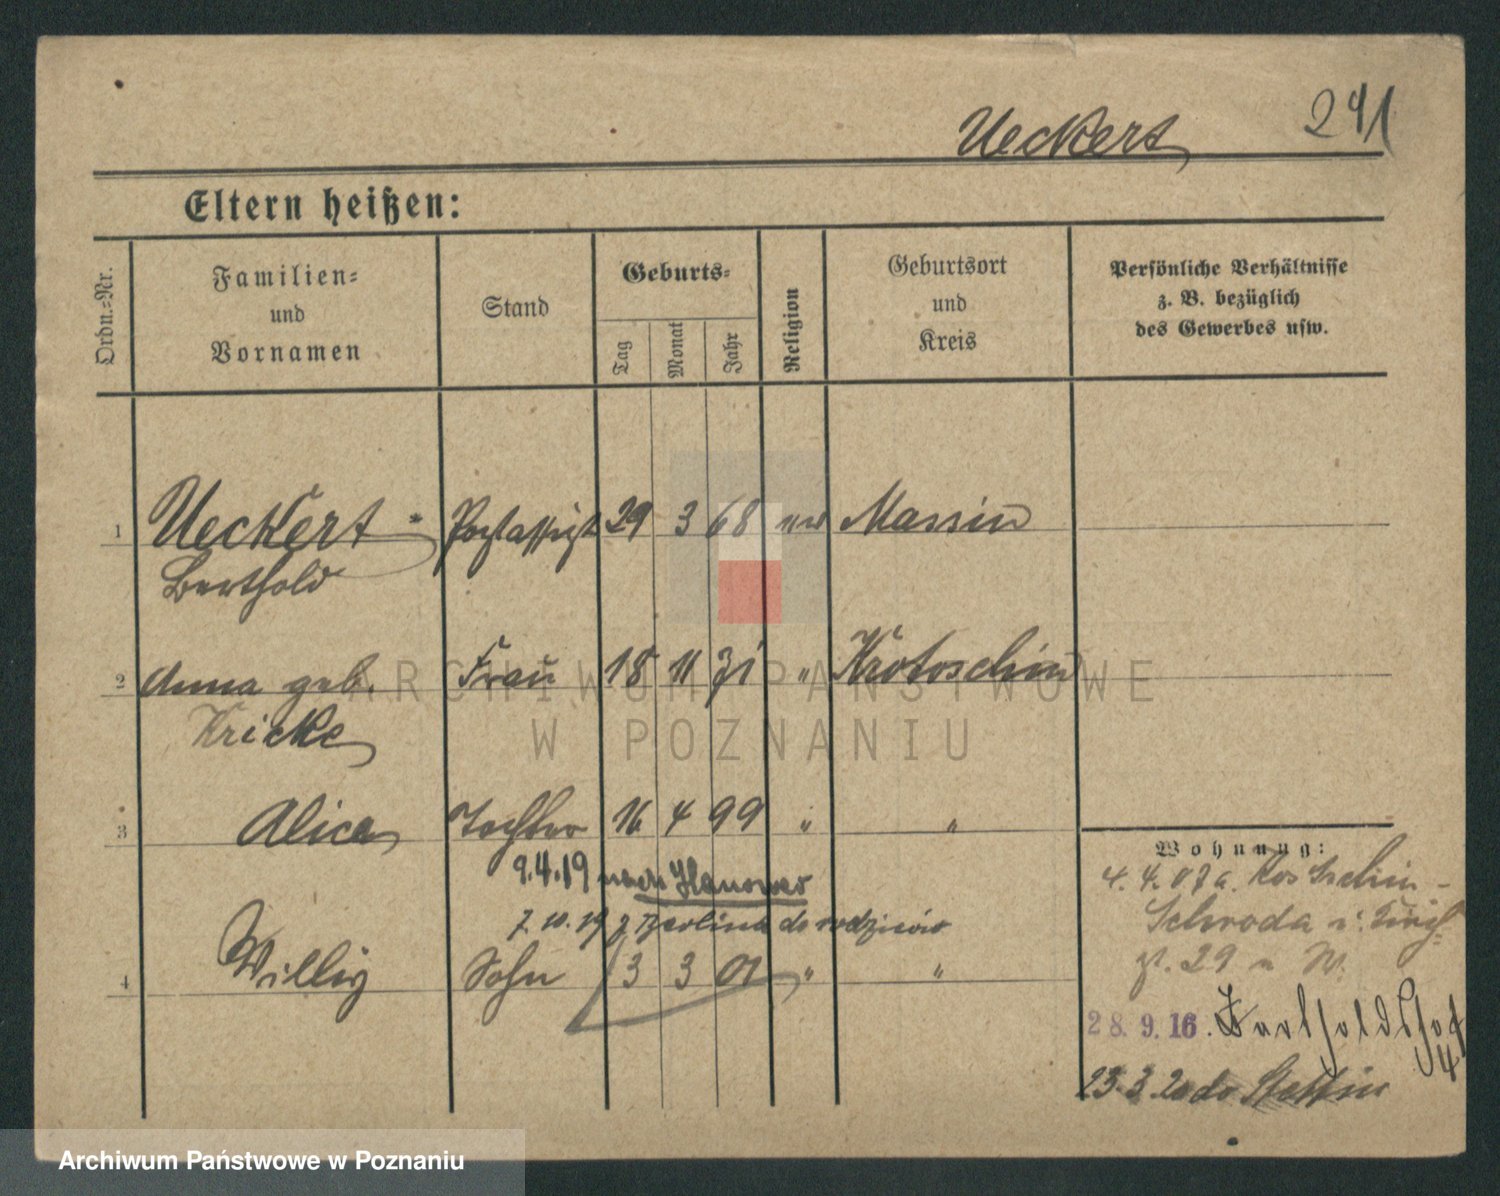 Ueckert 241
Eltern heißen:
Ordn.=Nr.
Familien=
und
Vornamen
Stand
Geburts=
Tag
Monat
Jahr
Religion
Geburtsort
und
Kreis
Persönliche Verhältnisse
z. B. bezüglich
des Gewerbes usw.
1 Ueckert Postassist. 29 3 68 ev Massin
Berthold
2 Anna geb. Frau 18 11 71 " Krotoschin
Kricke
3 Alice Tochter 16 4 99 " "
9.4.19 nach Hanower
7.10.19 z Berlina do rodziców
4 Willy Sohn 3 3 01 " "
Wohnung:
4.4.07 a. Kos
Schroda
29
28.9.16. Bertholdshof
4
23.3.20 do Stettin
ARCHIWUM PAŃSTWOWE
W POZNANIU
Archiwum Państwowe w Poznaniu